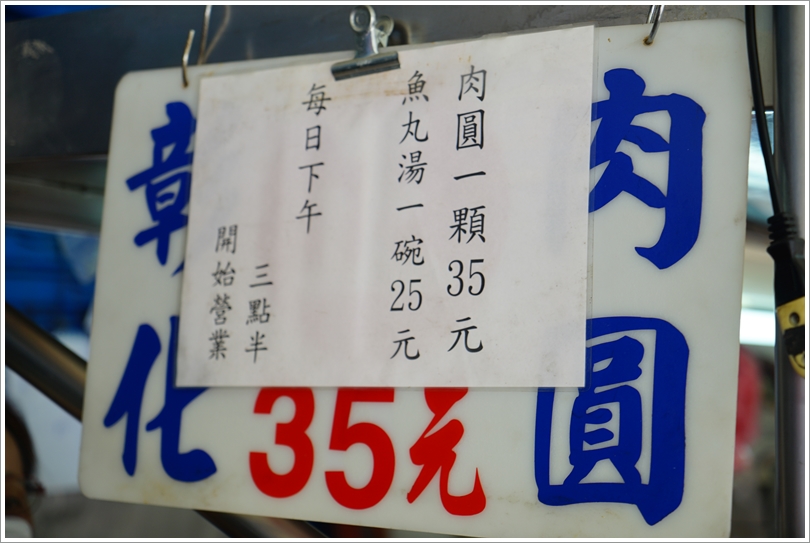 肉圓一顆35元
魚丸湯一碗25元
每日下午
三點半
開始營業
肉圓
35元
彰化